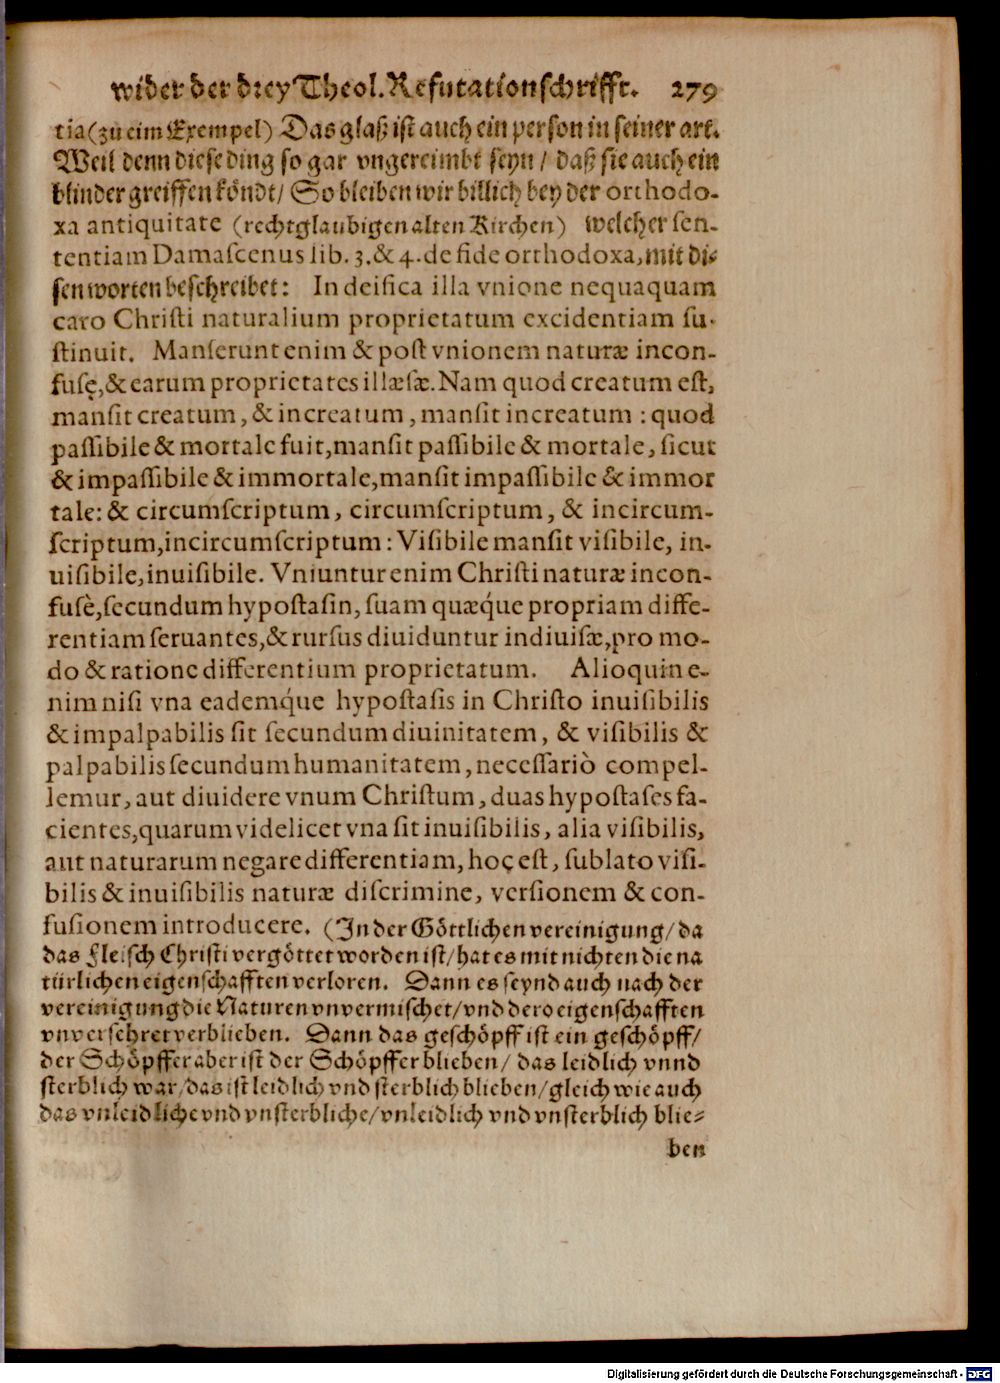 wider der drey Theol. Refutationschrifft. 279
tia (zu eim Exempel) Das glaß ist auch ein person in seiner art.
Weil denn diese ding so gar vngereimbt seyn / daß sie auch ein
blinder greiffen köndt / So bleiben wir billich bey der orthodo-
xa antiquitate (rechtglaubigen alten Kirchen) welcher sen-
tentiam Damascenus lib. 3. & 4. de fide orthodoxa, mit di-
sen worten beschreibet: In deifica illa vnione nequaquam
caro Christi naturalium proprietatum excidentiam su-
stinuit. Manserunt enim & post vnionem naturæ incon-
fusę, & earum proprietates illæsæ. Nam quod creatum est,
mansit creatum, & increatum, mansit increatum: quod
passibile & mortale fuit, mansit passibile & mortale, sicut
& impassibile & immortale, mansit impassibile & immor
tale: & circumscriptum, circumscriptum, & incircum-
scriptum, incircumscriptum: Visibile mansit visibile, in-
uisibile, inuisibile. Vniuntur enim Christi naturæ incon-
fusè, secundum hypostasin, suam quæq́ue propriam diffe-
rentiam seruantes, & rursus diuiduntur indiuisæ, pro mo-
do & ratione differentium proprietatum. Alioquin e-
nim nisi vna eademq́ue hypostasis in Christo inuisibilis
& impalpabilis sit secundum diuinitatem, & visibilis &
palpabilis secundum humanitatem, necessariò compel-
lemur, aut diuidere vnum Christum, duas hypostases fa-
cientes, quarum videlicet vna sit inuisibilis, alia visibilis,
aut naturarum negare differentiam, hoc est, sublato visi-
bilis & inuisibilis naturæ discrimine, versionem & con-
fusionem introducere. (In der Göttlichen vereinigung / da
das fleisch Christi vergöttet worden ist / hat es mit nichten die na
türlichen eigenschafften verloren. Dann es seynd auch nach der
vereinigung die Naturen vnvermischet / vnd dero eigenschafften
vnversehret verblieben. Dann das geschöpff ist ein geschöpff /
der Schöpffer aber ist der Schöpffer blieben / das leidlich vnnd
sterblich war / das ist leidlich vnd sterblich blieben / gleich wie auch
das vnleidliche vnd vnsterbliche / vnleidlich vnd vnsterblich blie-
ben
Digitalisierung gefördert durch die Deutsche Forschungsgemeinschaft - DFG